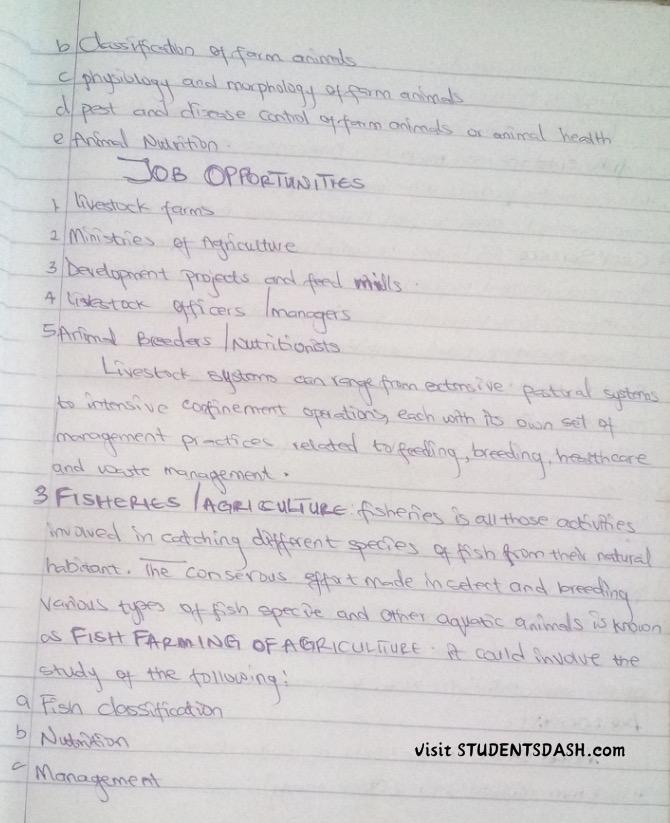 b Classification of farm animals
c physiology and morphology of farm animals
d pest and disease control of farm animals or animal health
e Animal Nutrition.
JOB OPPORTUNITIES
1 livestock farms
2 Ministries of Agriculture
3 Development projects and feed mills.
4 Livestock officers / managers
5 Animal Breeders / Nutritionists
Livestock systems can range from extensive pastural systems
to intensive confinement operations, each with its own set of
management practices related to feeding, breeding, healthcare
and waste management.
3 FISHERIES / AGRICULTURE: fisheries is all those activities
invoved in catching different species of fish from their natural
habitant. The conserous effort made in celect and breeding
various types of fish specie and other aquatic animals is known
as FISH FARMING OF AGRICULTURE. it could invove the
study of the following:
a Fish classification
b Nutrition
c Management
Visit STUDENTSDASH.com